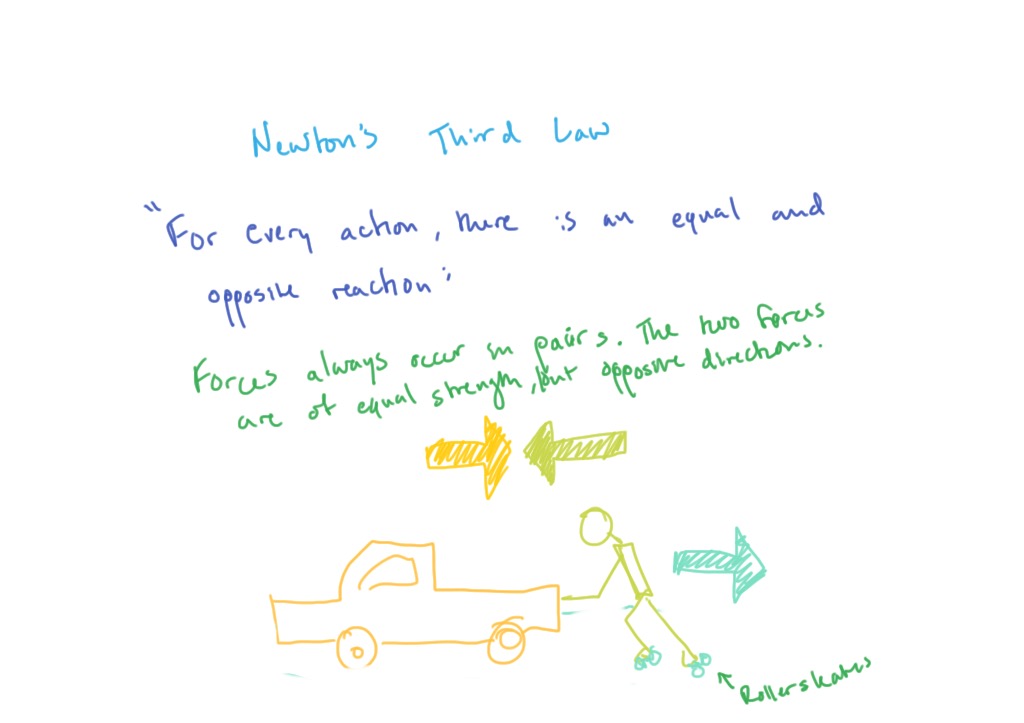 Newton's Third Law
"For every action, there is an equal and
opposite reaction"
Forces always occur in pairs. The two forces
are of equal strength, but opposite directions.
Rollerskates